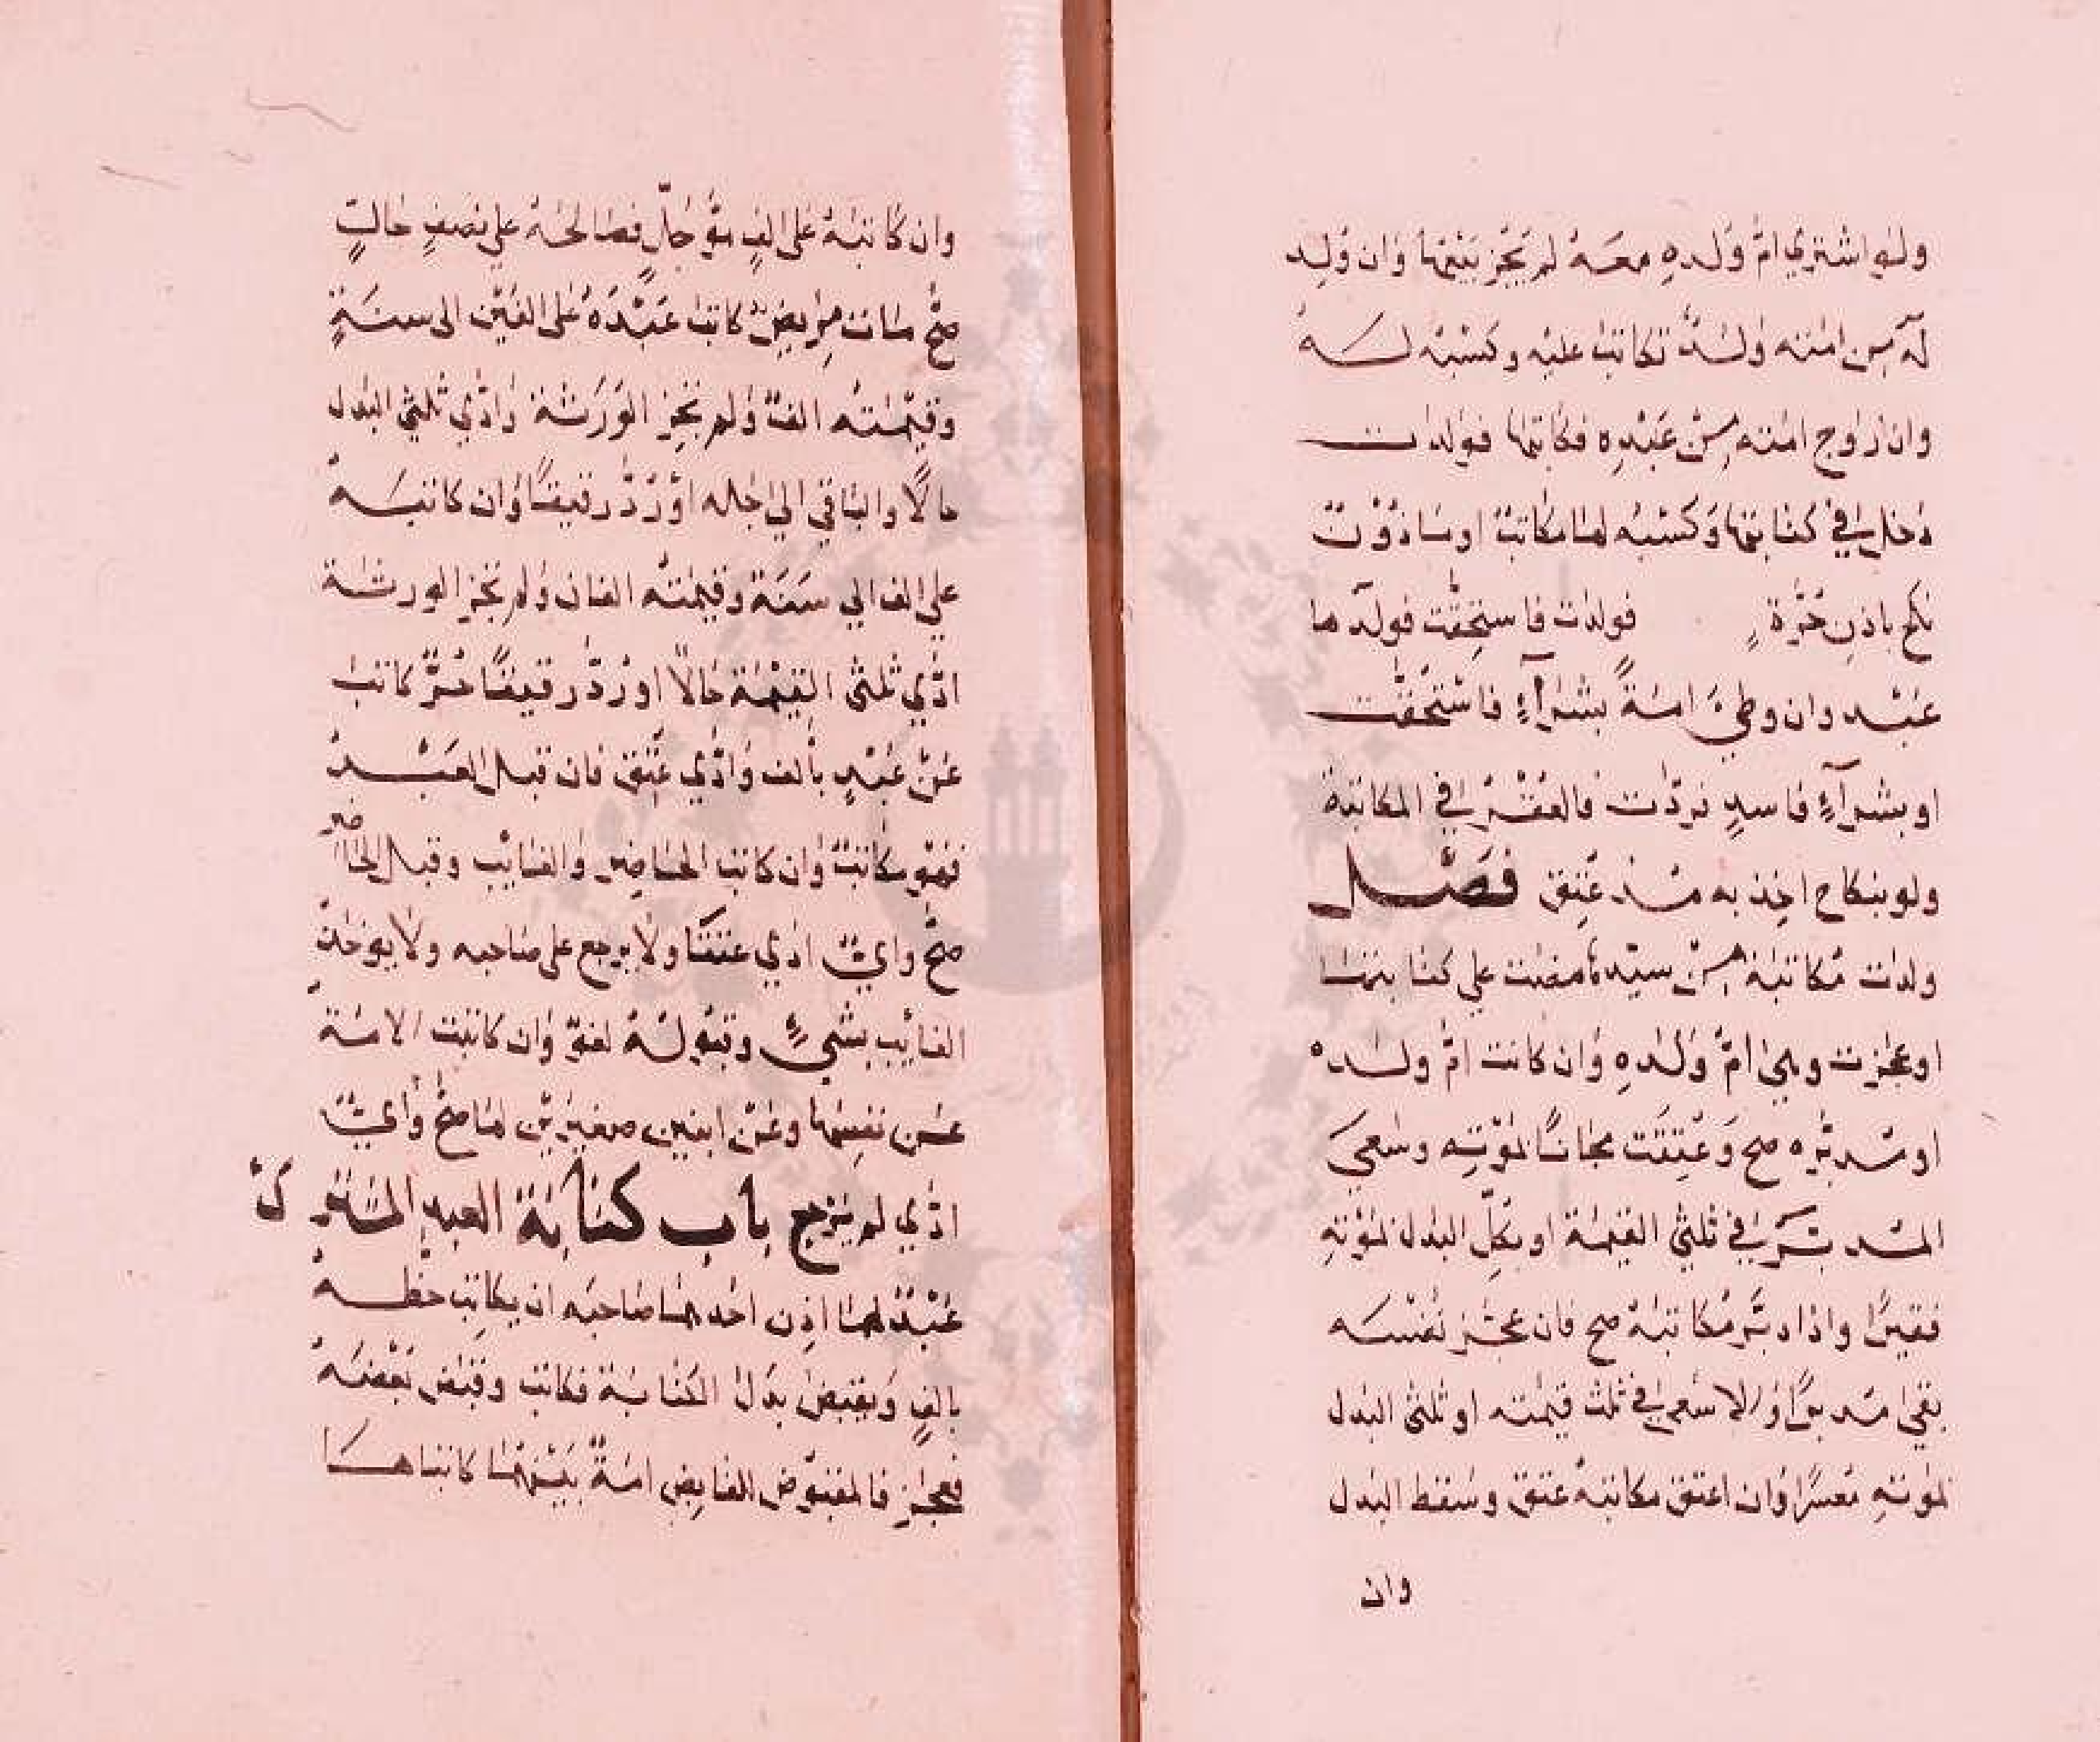 ولو اشتري ام ولده معه لم يجز بيعها وان ولد
له من امته ولد تكاتب عليه وكسبه له
وان زوج امته من عبده فكاتبها فولدت
دخل في كتابتها وكسبه لها مكاتب او ماذون
نكح باذن حرة فولدت فاستحقت فولدها
عبد وان وطئ امة بشرآء فاستحقت
او بشرآء فاسد فردت فالعقر في المكاتبة
ولو بنكاح اخذ به مذ عتق فصل
ولدت مكاتبة من سيدها مضت علي كتابتها
او عجزت وهي ام ولده وان كاتب ام ولده
او مدبره صح وعتقت مجانا لموته وسعي
المدبر في ثلثي القيمة او بكل البدل لموته
فقيرا واذا دبر مكاتبه صح فان عجز نفسه
بقي مدبرا والا سعي في ثلث قيمته او ثلثي البدل
لموته معسرا وان اعتق مكاتبه عتق وسقط البدل
وان
وان كاتبه على الف مؤجل فصالحه علي نصف حال
صح مات مريض كاتب عبده على الفين الى سنة
وقيمته الف ولم تجز الورثة ادي ثلثي البدل
حالا والباقي الي اجله او رد رقيقا وان كاتبه
علي الف الي سنة وقيمته الفان ولم تجز الورثة
ادي ثلثي القيمة حالا او رد رقيقا حر كاتب
عن عبد بالف وادي عتق فان قبل العبد
فهو مكاتب وان كاتب الحاضر والغايب وقبل الحاضر
صح واي ادي عتقا ولا يرجع على صاحبه ولا يوخذ
الغايب بشيء وقبوله لغو وان كاتبت الامة
عن نفسها وعن ابنين صغيرين لها صح واي
ادي لم يرجع باب كتابة العبد المشترك
عبد لهما اذن احدهما صاحبه ان يكاتب حظه
بالف ويقبض بدل الكتابة فكاتب وقبض بعضه
فعجز فالمقبوض للقابض امة بينهما كاتباها